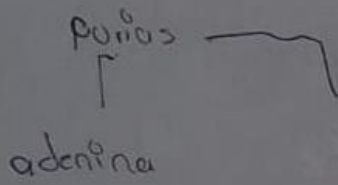 purinas
adenina